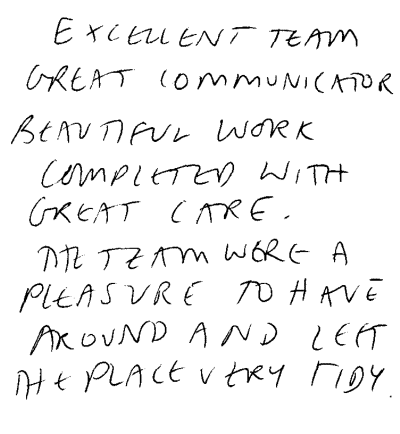 EXCELLENT TEAM
GREAT COMMUNICATOR
BEAUTIFUL WORK
COMPLETED WITH
GREAT CARE.
THE TEAM WERE A
PLEASURE TO HAVE
AROUND AND LEFT
THE PLACE VERY TIDY.